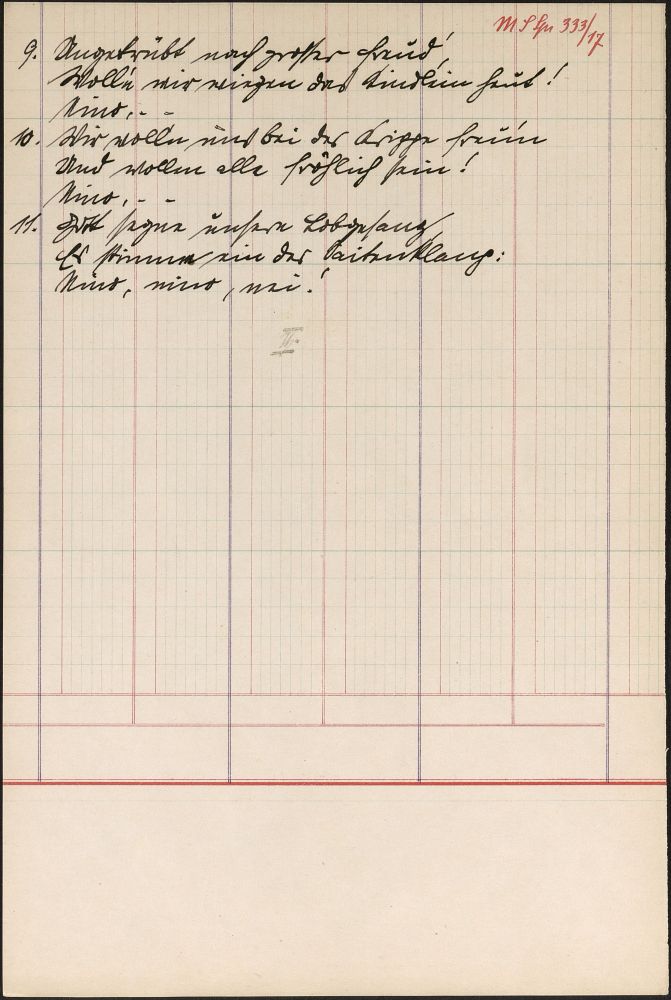 M S Spr 333/17
9. Ungetrübt nach grosser Freud'
Woll'n wir wiegen das Kindlein heut!
Nino, - -
10. Wir woll'n uns bei der Krippe freu'n
Und wollen alle fröhlich sein!
Nino, - -
11. Gott segne unsern Lobgesang,
Es stimme ein der Saitenklang:
Nino, nino, nei!
II.